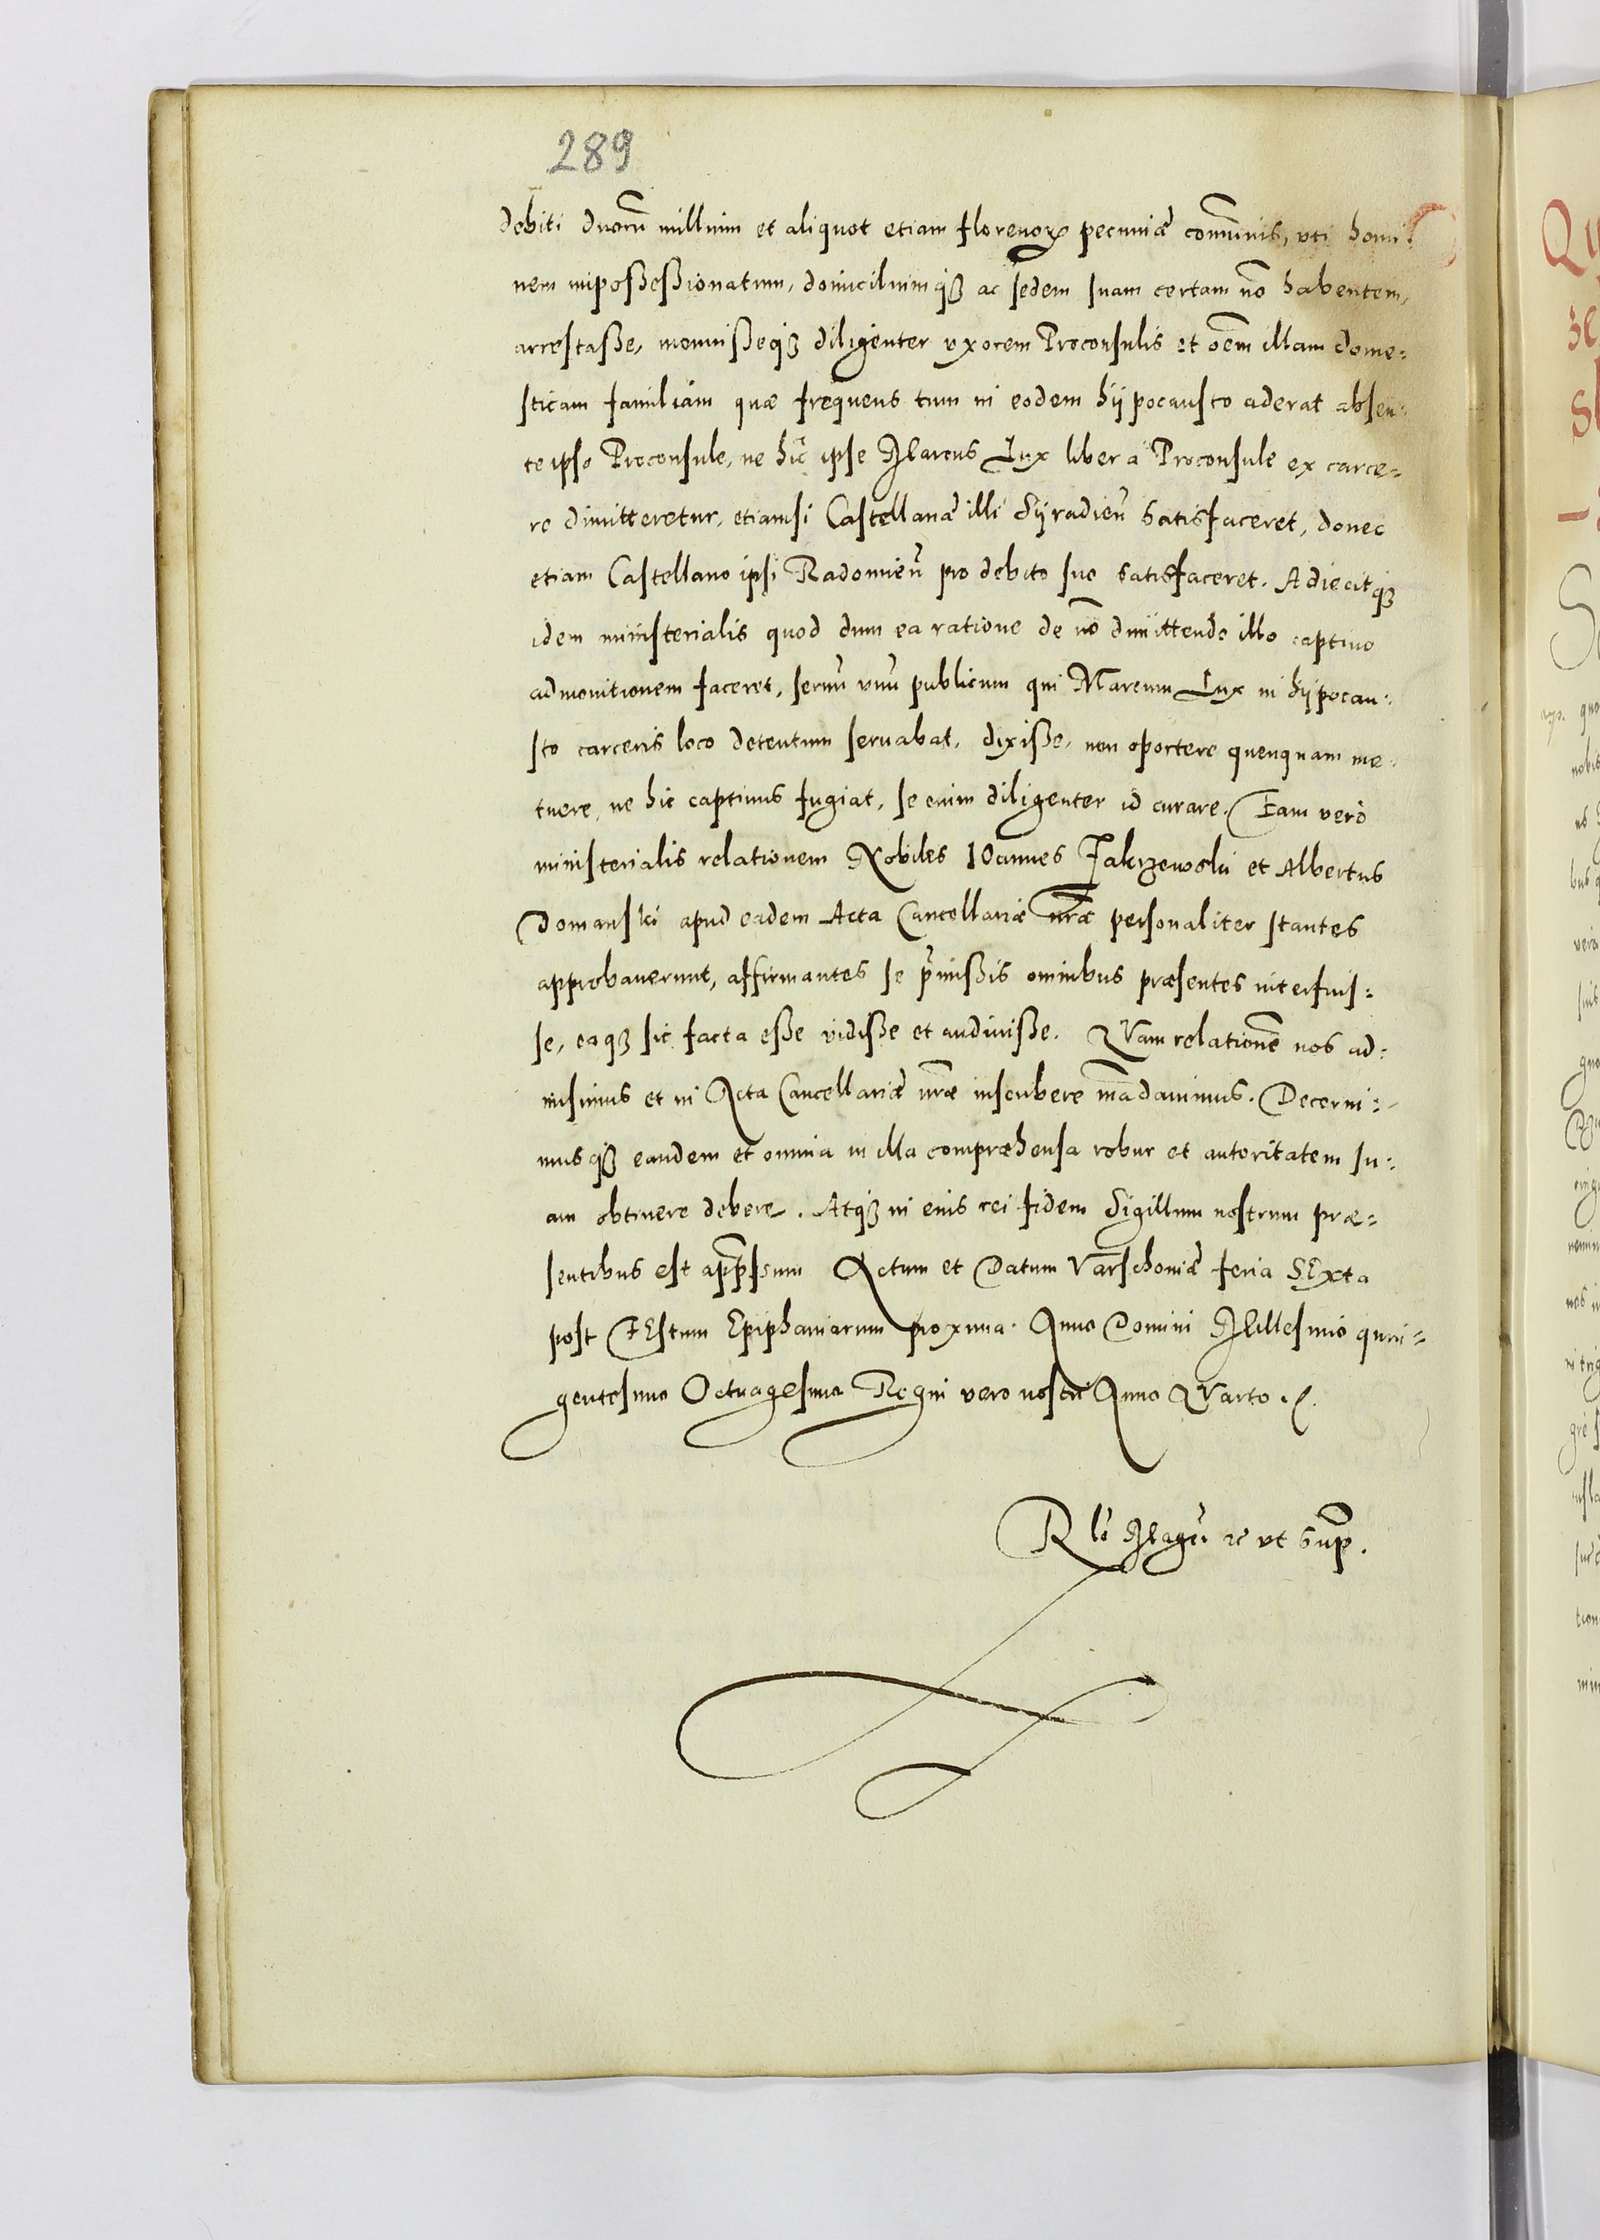 289
debiti duorũ millium et aliquot etiam florenoꝝ pecuniæ com̃unis, uti homi:
nem impoßeßionatum, domiciliumqꝫ ac sedem suam certam nõ habentem,
arrestaße, monuißeqꝫ diligenter uxorem Proconsulis et oẽm illam dome:
sticam familiam quæ frequens tum in eodem hÿpocausto aderat absen:
te ipso Proconsule, ne hic ipse Marcus Lux liber a Proconsule ex carce:
re dimitteretur, etiamsi Castellanæ illi Sÿradieñ satisfaceret, donec
etiam Castellano ipsi Radomieñ pro debito suo satisfaceret. Adiecitqꝫ
idem ministerialis quod dum ea ratione de nõ dimittendo illo captivo
admonitionem faceret, servũ unũ publicum qui Marcum Lux in hÿpocau:
sto carceris loco detentum servabat, dixiße, non oportere quenquam me:
tuere, ne hic captivus fugiat, se enim diligenter id curare. Eam verò
ministerialis relationem Nobiles IOannes Jakrzewski et Albertus
Domanski apud eadem Acta Cancellariæ nr̃æ personaliter stantes
approbaverunt, affirmantes se p̃mißis omnibus præsentes interfuis:
se, eaqꝫ sic facta eße vidiße et audiviße. QVam relationẽ nos ad:
misimus et in Acta Cancellariæ nr̃æ inscribere mãdavimus. Decerni:
musqꝫ eandem et omnia in illa compræhensa robur et autoritatem su:
am obtinere debere. Atqꝫ in eius rei fidem Sigillum nostrum præ:
sentibus est app̃ssum Actum et Datum Varschoviæ feria SExta
post FEstum Epiphaniarum proxima. Anno Domini Millesimo quin:
gentesimo Octuagesimo Regni vero nostri Anno QVarto.
Rl̃i Magr̃i ꝛc ut sup̃.